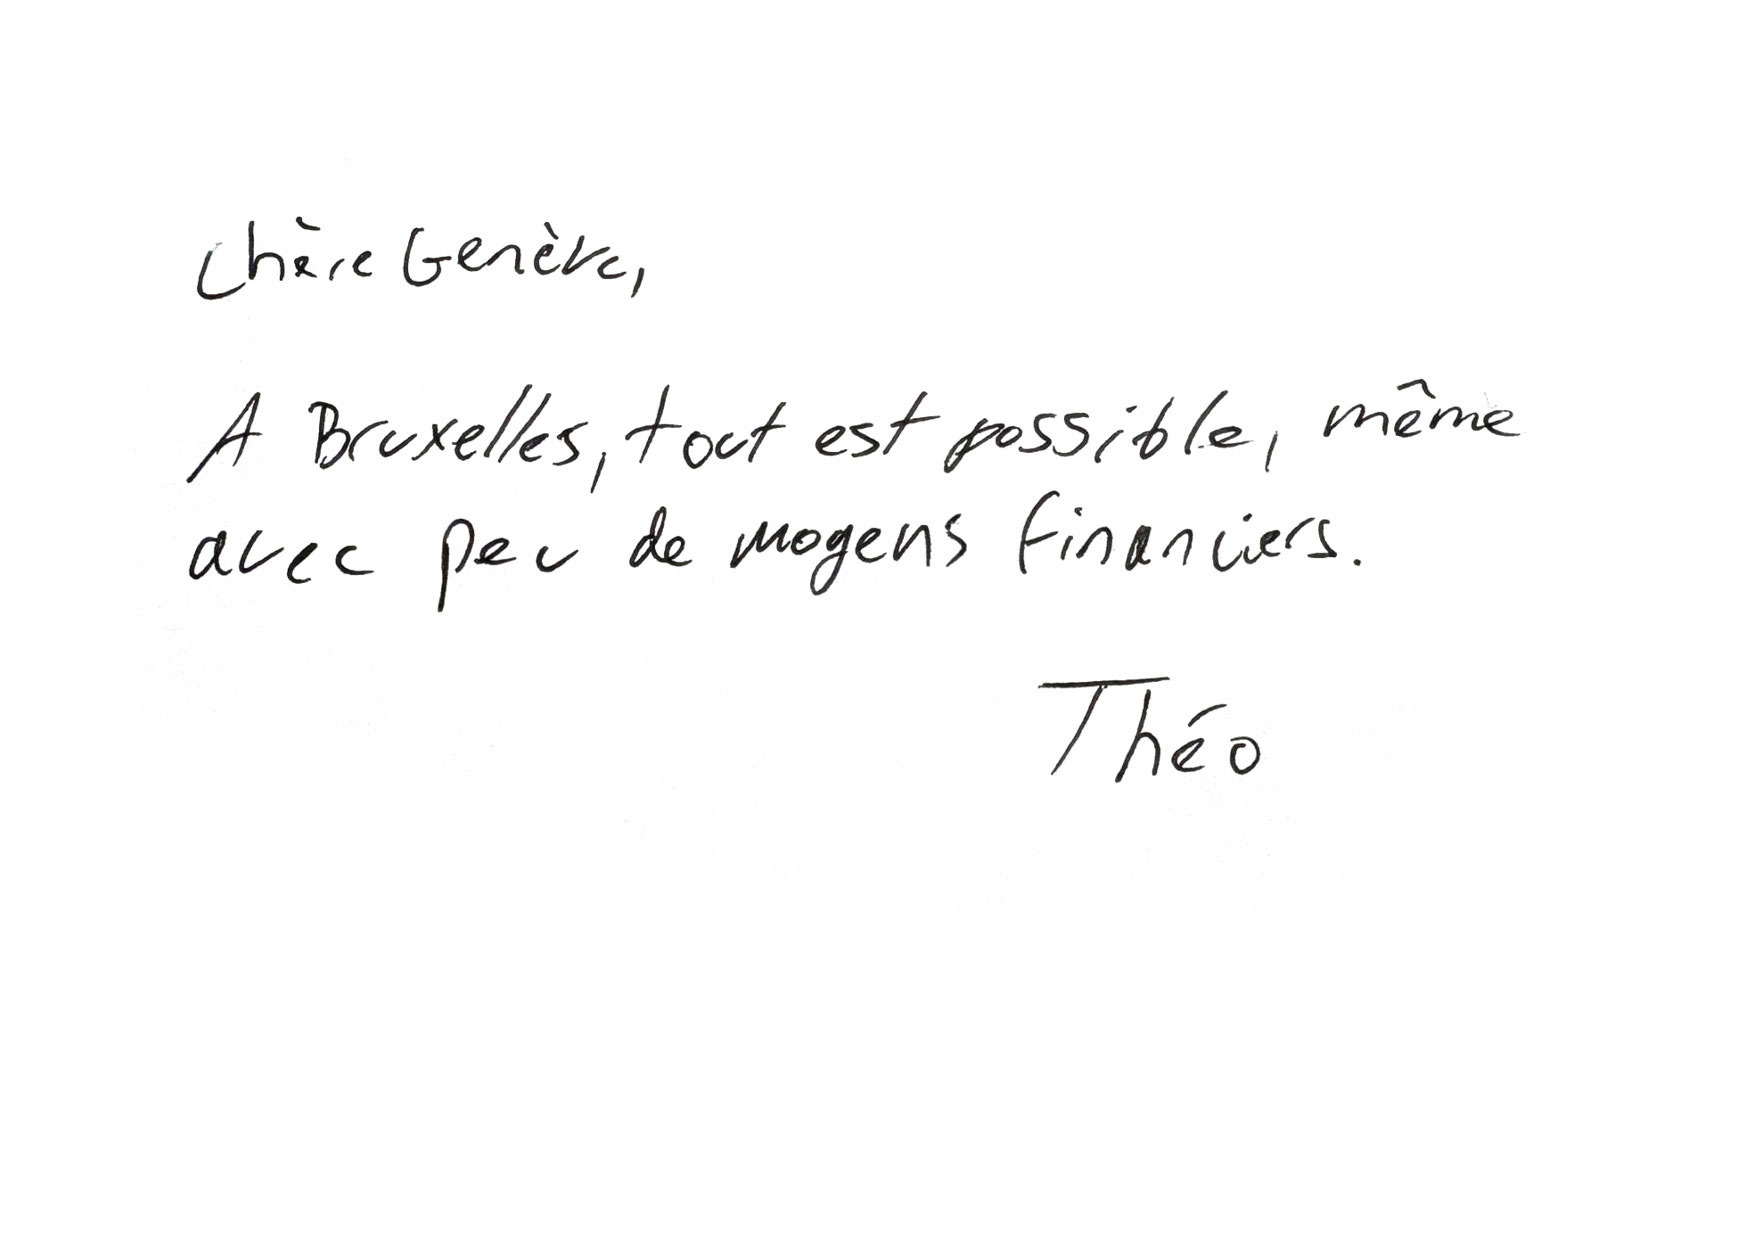 Chère Genève,
A Bruxelles, tout est possible, même
avec peu de moyens financiers.
Théo